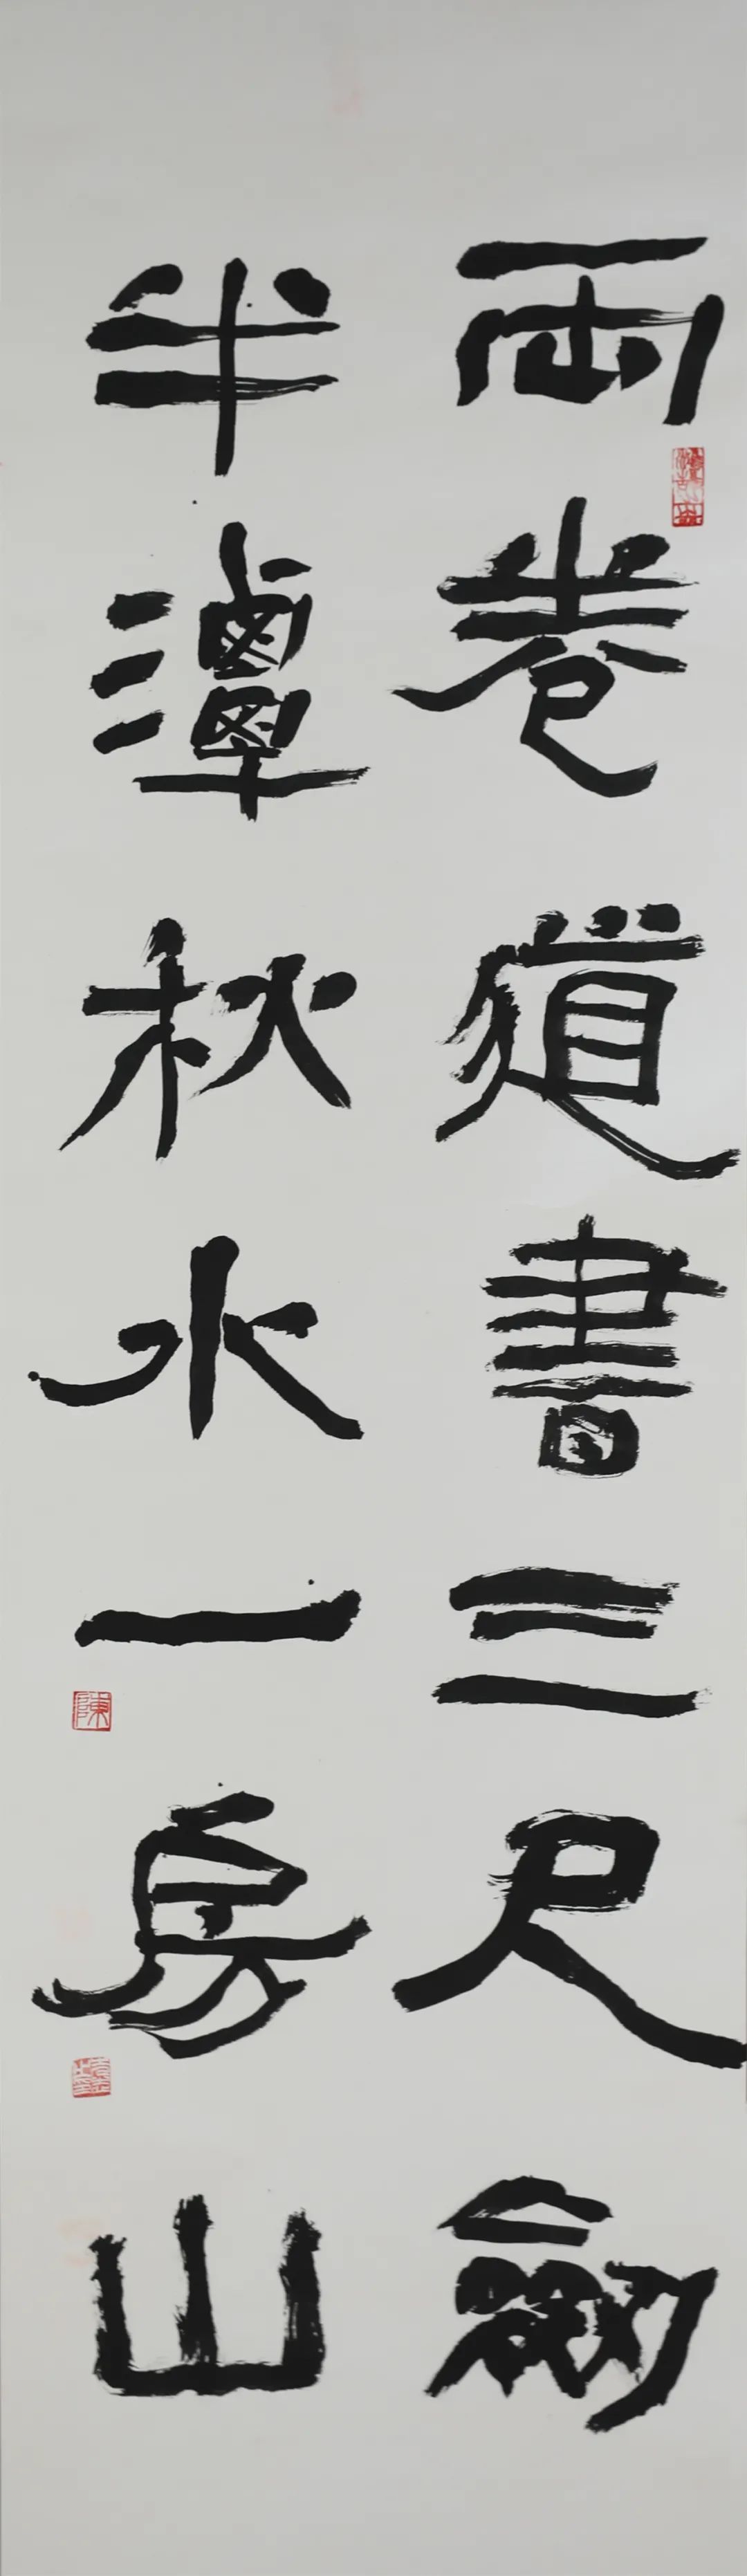 兩卷道書三尺劍
半潭秋水一房山
陳